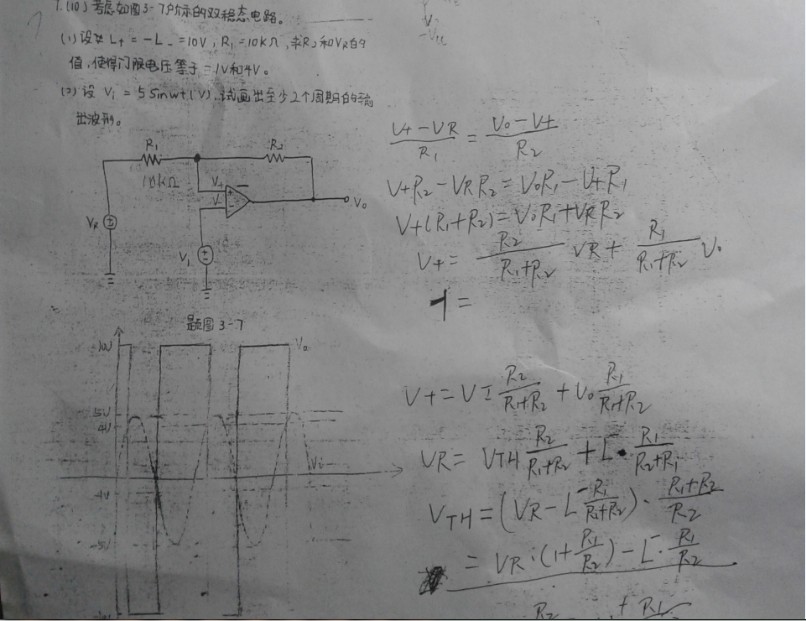 7.(10) 考虑如图3-7所示的双稳态电路。
(1) 设 L+ = -L- = 10V, R1 = 10KΩ, 求R2和VR的
值, 使得门限电压等于 -1V和4V。
(2) 设 Vi = 5 Sinωt (V), 试画出至少2个周期的输
出波形。
-Vcc
R1
R2
10KΩ
V+
V-
V0
VR
Vi
题图 3-7
10V
V0
5V
4V
Vi
-4V
-5V
(V+ - VR)/R1 = (V0 - V+)/R2
V+R2 - VRR2 = V0R1 - V+R1
V+(R1+R2) = V0R1 + VRR2
V+ = R2/(R1+R2) VR + R1/(R1+R2) V0
-1 =
V+ = VI R2/(R1+R2) + V0 R1/(R1+R2)
VR = VTH R2/(R1+R2) + L- · R1/(R2+R1)
VTH = (VR - L- R1/(R1+R2)) · (R1+R2)/R2
= VR · (1 + R1/R2) - L- · R1/R2